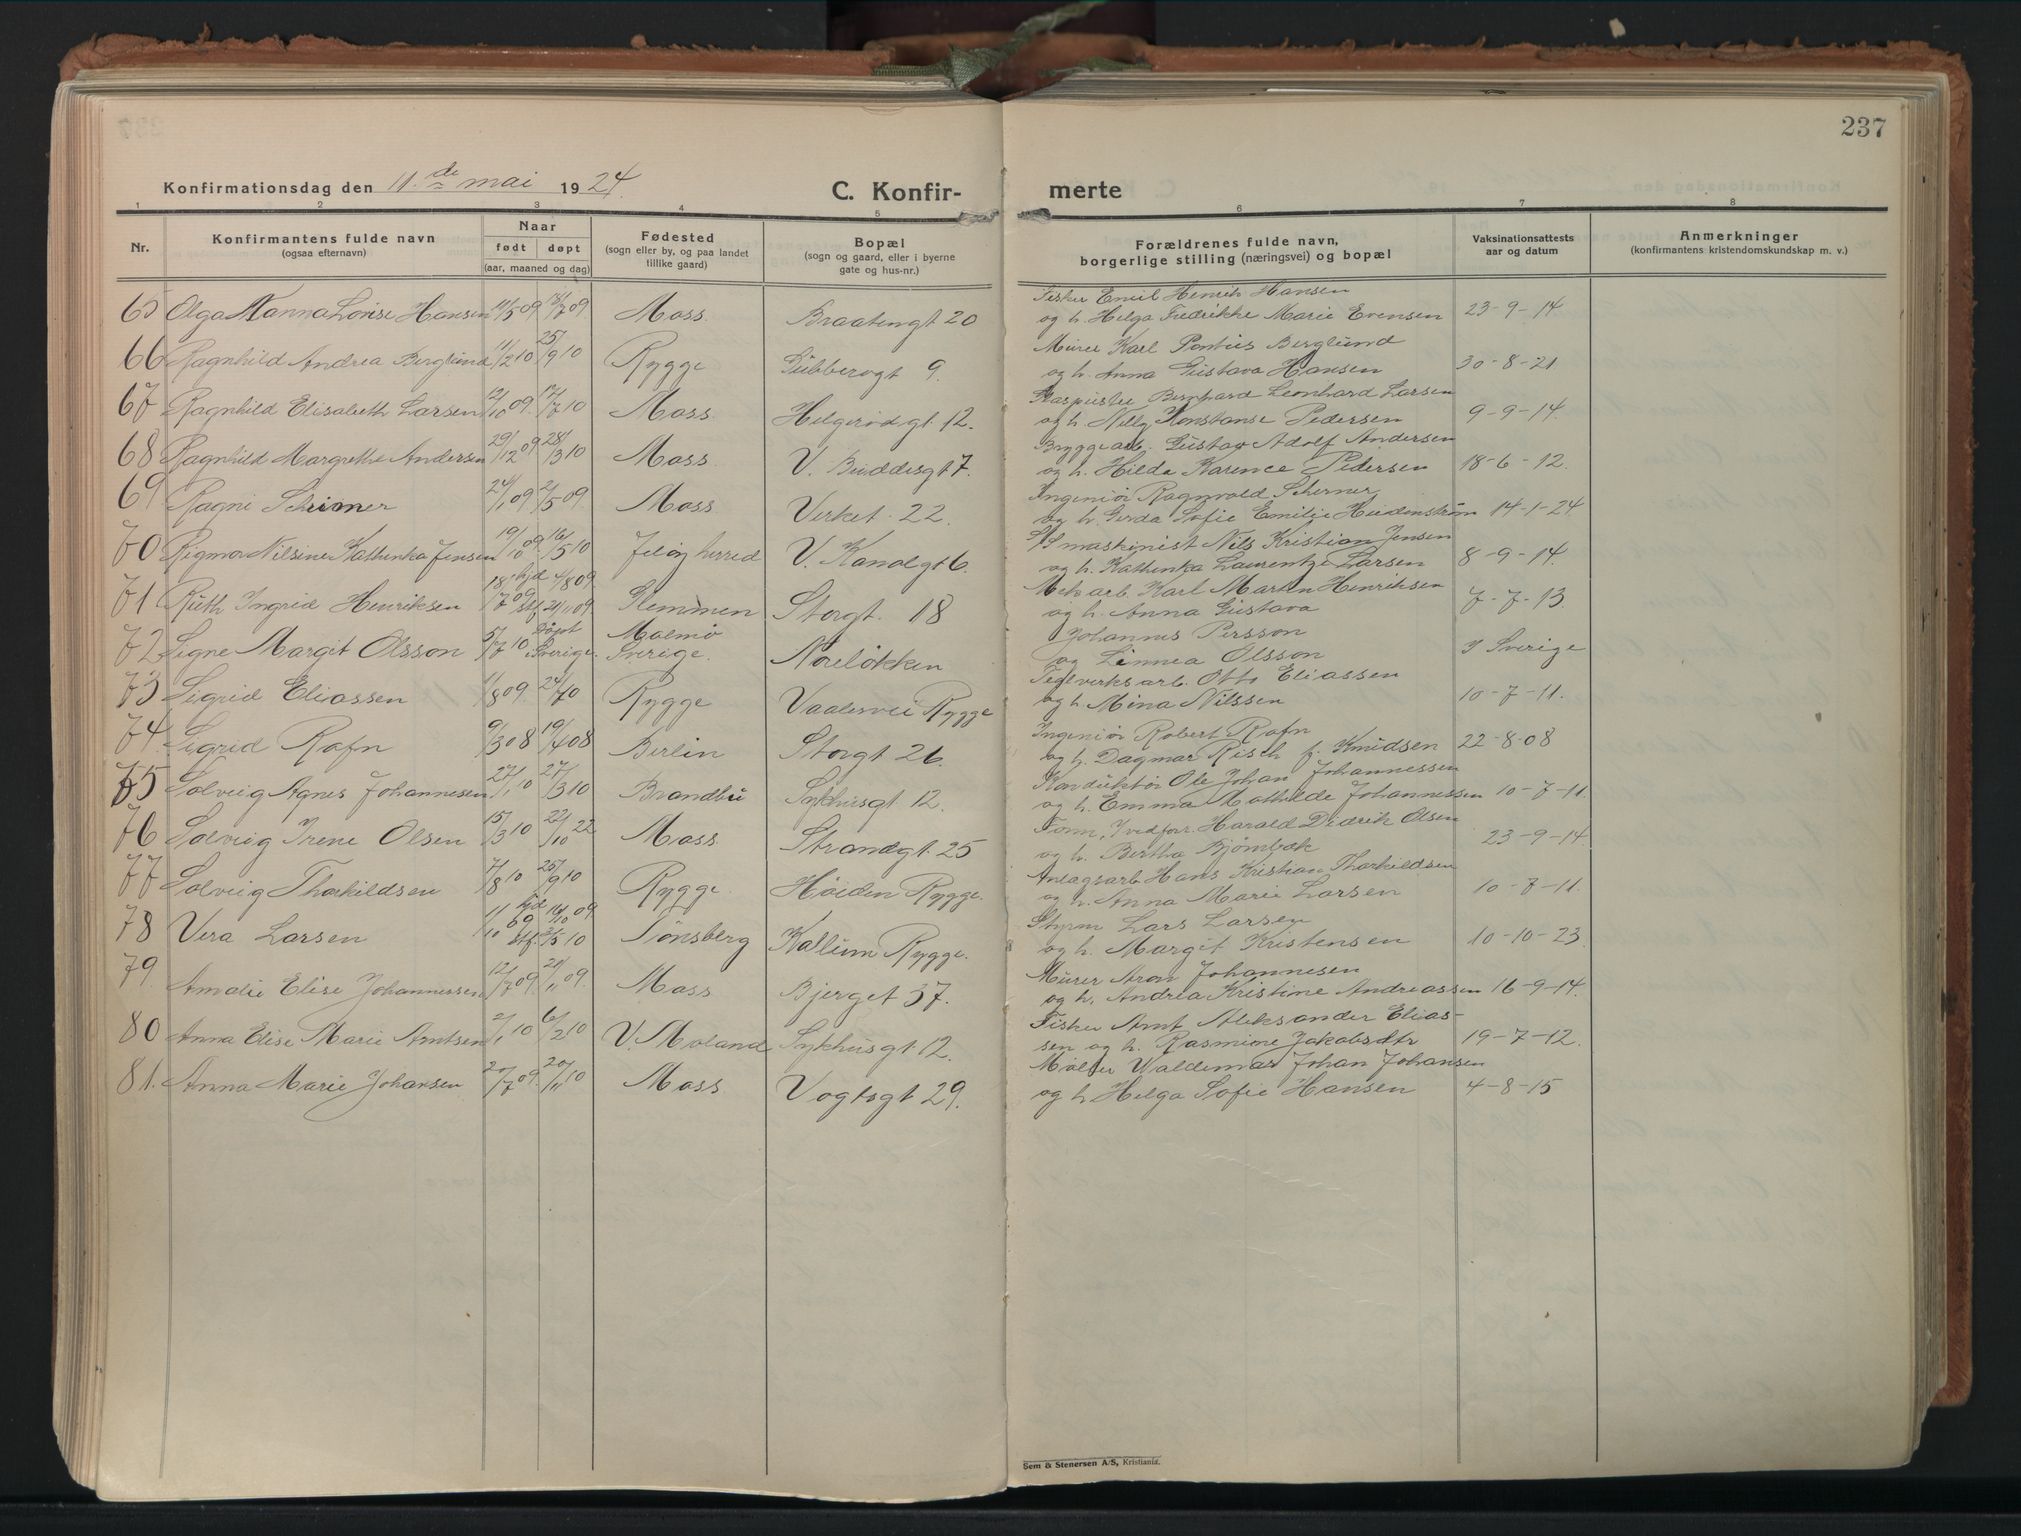 237
Konfirmationsdag den 11.de mai 1924.
C. Konfirmerte
1 2 3 4 5 6 7 8
Nr.
Konfirmantens fulde navn
(ogsaa efternavn)
Naar
født døpt
(aar, maaned og dag)
Fødested
(sogn eller by, og paa landet
tillike gaard)
Bopæl
(sogn og gaard, eller i byerne
gate og hus-nr.)
Forældrenes fulde navn,
borgerlige stilling (næringsvei) og bopæl
Vaksinationsattests
aar og datum
Anmerkninger
(konfirmantens kristendomskundskap m. v.)
65 Olga Nanna Lovise Hansen 11/5 09 18/7 09. Moss. Braatengt 20
Fisker Emil Henrik Hansen
og h. Helga Fredrikke Marie Evensen 23-9-14
66 Ragnhild Andrea Berglund 11/2 10 25/9 10 Rygge Gubberogt 9.
Murer Karl Pontus Berglund
og h. Anna Gustava Hansen 30-8-21
67 Ragnhild Elisabeth Larsen 12/10 09. 17/7 10 Moss. Helgerødgt. 12.
Glaspuster Bernhard Leonhard Larsen
og h. Nelly Konstanse Pedersen 9-9-14.
68 Ragnhild Margrethe Andersen 29/12 09 28/3 10 Moss. V. Buddesgt 7.
Bryggearb. Gustav Adolf Andersen
og h. Hilda Karence Pedersen 18-6-12.
69 Ragni Scherner 24/1 09 2/5 09. Moss. Verket 22.
Ingeniør Ragnvald Scherner
og h. Gerda Sofie Emilie Heidenstrøm 14-1-24
70 Rigmor Nilsine Kathinka Jensen 19/10 09. 16/5 10 Jeløy herred V. Kanalgt 6.
S/S maskinist Nils Kristian Jensen
og h. Kathinka Laurentze Larsen 8-9-14.
71 Ruth Ingrid Henriksen 18/7 09 hjd 4/8 09. stf. 21/11 09. Glemmen Storgt. 18
Mek arb. Karl Martin Henriksen
og h. Anna Gustava 7-7-13.
72 Signe Margit Olsson 5/7 10 Døpt i Sverige. Malmø Sverige. Noreløkken
Johannes Persson
og Linnea Olsson I Sverige
73 Sigrid Eliassen 1/8 09. Rygge Vaalervei Rygge
Teglverksarb. Otto Eliassen
og h. Mina Nilssen 10-7-11.
74 Sigrid Rafn 9/3 08 19/4 08 Berlin Storgt 26.
Ingeniør Robert Rafn
og h. Dagmar Risch f. Knudsen 22-8-08
75 Solveig Agnes Johannesen 27/1 10 27/3 10 Brandbu Sykhusgt 12.
Konduktør Ole Johan Johannessen
og h. Emma Mathilde Johannessen 10-7-11.
76 Solveig Irene Olsen 15/3 10 22/10 22 Moss. Strandgt. 25
Form. I vedforr. Harald Didrik Olsen
og h. Bertha Bjørnbæk 23-9-14.
77 Solveig Thorkildsen 7/8 10 25/9 10 Rygge. Høiden Rygge.
Anlægsarb Hans Kristian Thorkildsen
og h. Anna Marie Larsen 10-7-11.
78 Vera Larsen 11/10 09 hjd 16/10 09. stf. 3/5 10 Tønsberg Kallum Rygge.
Styrm Lars Larsen
og h. Margit Kristensen 10-10-23.
79. Amalie Elise Johannessen 12/7 09. 21/11 09. Moss Bjerget 37.
Murer Aron Johannesen
og h. Andrea Kristine Andreassen 16-9-14.
80 Anna Elise Marie Arntsen 2/1 10 6/2 10 V. Moland Sykhusgt 12.
Fisker Arnt Aleksander Elias-
sen og h. Rasmine Jakobsdtr 19-7-12.
81. Anna Marie Johansen 20/7 09. 20/11 10 Moss Vogtsgt 29.
Møller Waldemar Johan Johansen
og h Helga Sofie Hansen 4-8-15
Sem & Stenersen A/S, Kristiania.